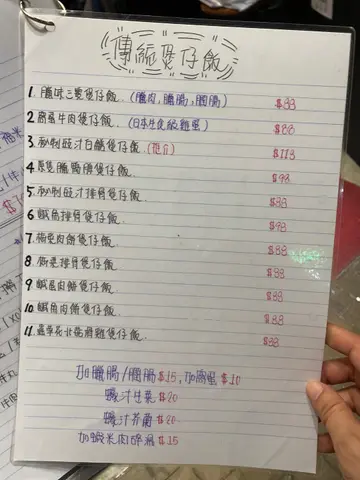 傳統煲仔飯
1. 臘味三寶煲仔飯. (臘肉, 臘腸, 膶腸) $88
2. 窩蛋牛肉煲仔飯. (日本生食級雞蛋) $88
3. 秘制豉汁白鱔煲仔飯. (推介) $118
4. 原隻臘鴨髀煲仔飯. $98
5. 秘制豉汁排骨煲仔飯. $88
6. 鹹魚排骨煲仔飯. $98
7. 梅菜肉餅煲仔飯. $88
8. 欖菜排骨煲仔飯. $88
9. 鹹蛋肉餅煲仔飯. $88
10. 鹹魚肉餅煲仔飯. $88
11. 蟲草花北菇滑雞煲仔飯. $88
加臘腸/膶腸 $15, 加窩蛋 $10
蠔汁生菜 $20
蠔汁芥蘭 $20
加蝦米肉碎湯 $15